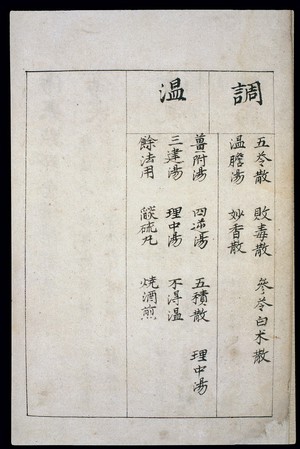 調
五苓散 敗毒散 參苓白朮散
溫膽湯 妙香散
溫
薑附湯 四逆湯 五積散 理中湯
三建湯 理中湯 不得溫
餘法用 硫丸 燒酒煎